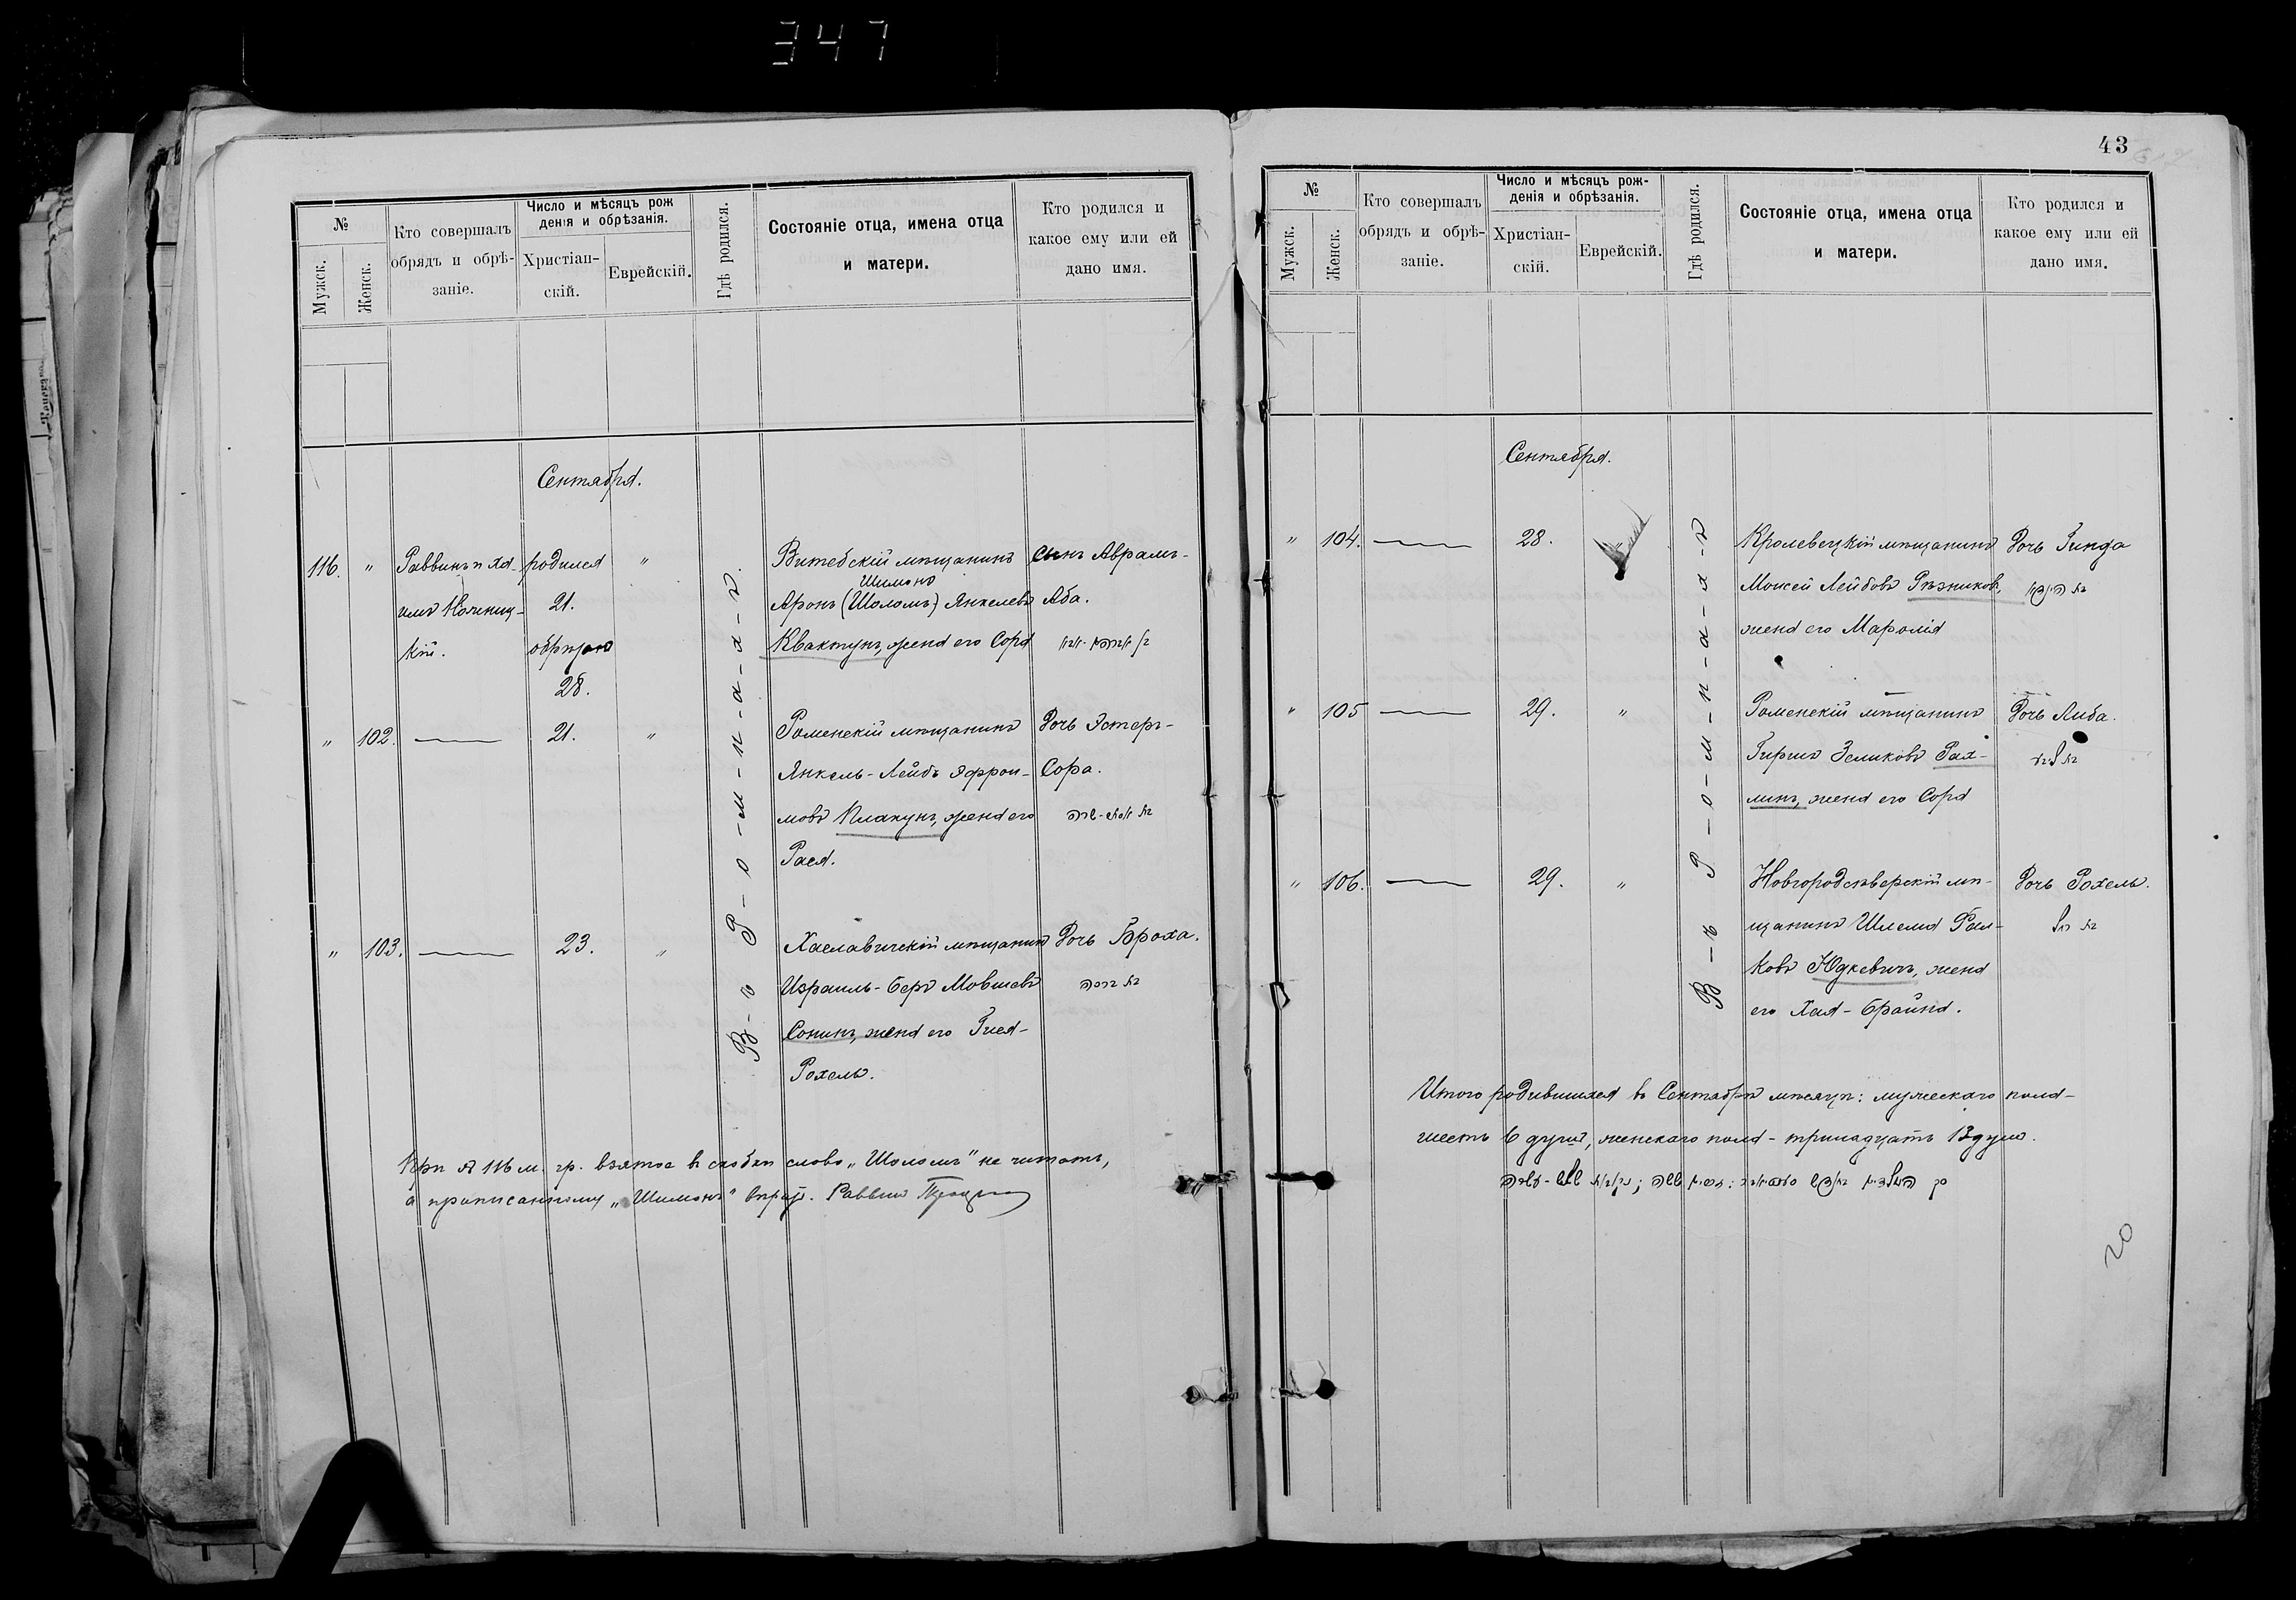 347
№
Мужск.
Женск.
Кто совершалъ
обрядъ и обрѣ-
заніе.
Число и мѣсяцъ рож
денія и обрѣзанія.
Христіан-
скій.
Еврейскій.
Гдѣ родился.
Состояніе отца, имена отца
и матери.
Кто родился и
какое ему или ей
дано имя.
Сентября.
116. "
Раввинъ и Ха-
кій.
родился
21.
обрѣзанъ
28.
"
Витебскій мѣщанинъ
Шимонъ
Аронъ (Шоломъ) Янкелевъ
Квактунъ, жена его Сора
Сынъ Абрамъ-
Аба.
" 102. — 21. "
Роменскій мѣщанинъ
Янкель-Лейбъ Эфрои-
мовъ Плакунъ, жена его
Рася.
Дочь Эстеръ-
Сора.
" 103. — 23. "
Хаславичскій мѣщанинъ
Израиль-Беръ Мовшевъ
Сонинъ, жена его Гися-
Рохель.
Дочь Броха.
בת ברכה
В-ъ Р-о-м-н-а-х-ъ.
При № 116 м. гр. взятое въ скобки слово „Шоломъ" не читать,
а прописанному „Шимонъ" вѣрить. Раввинъ
43
№
Мужск.
Женск.
Кто совершалъ
обрядъ и обрѣ-
заніе.
Число и мѣсяцъ рож-
денія и обрѣзанія.
Христіан-
скій.
Еврейскій.
Гдѣ родился.
Состояніе отца, имена отца
и матери.
Кто родился и
какое ему или ей
дано имя.
Сентября.
" 104. — 28. "
Кролевецкій мѣщанинъ
Моисей Лейбовъ Рѣзниковъ,
жена его Марошія
Дочь Гинда
" 105 — 29. "
Роменскій мѣщанинъ
Гиршъ Зеликовъ Рах-
линъ, жена его Сора
Дочь Либа.
בת ליבא
" 106. — 29. "
Новгородсѣверскій мѣ-
щанинъ Шлема Фал-
ковъ Юдкевичъ, жена
его Хая-Брайна.
Дочь Рохель.
בת רחל
В-ъ Р-о-м-н-а-х-ъ
Итого родившихся въ Сентябрѣ мѣсяцѣ: мужескаго пола-
шесть 6 душъ, женскаго пола - тринадцать 13 душъ.
20